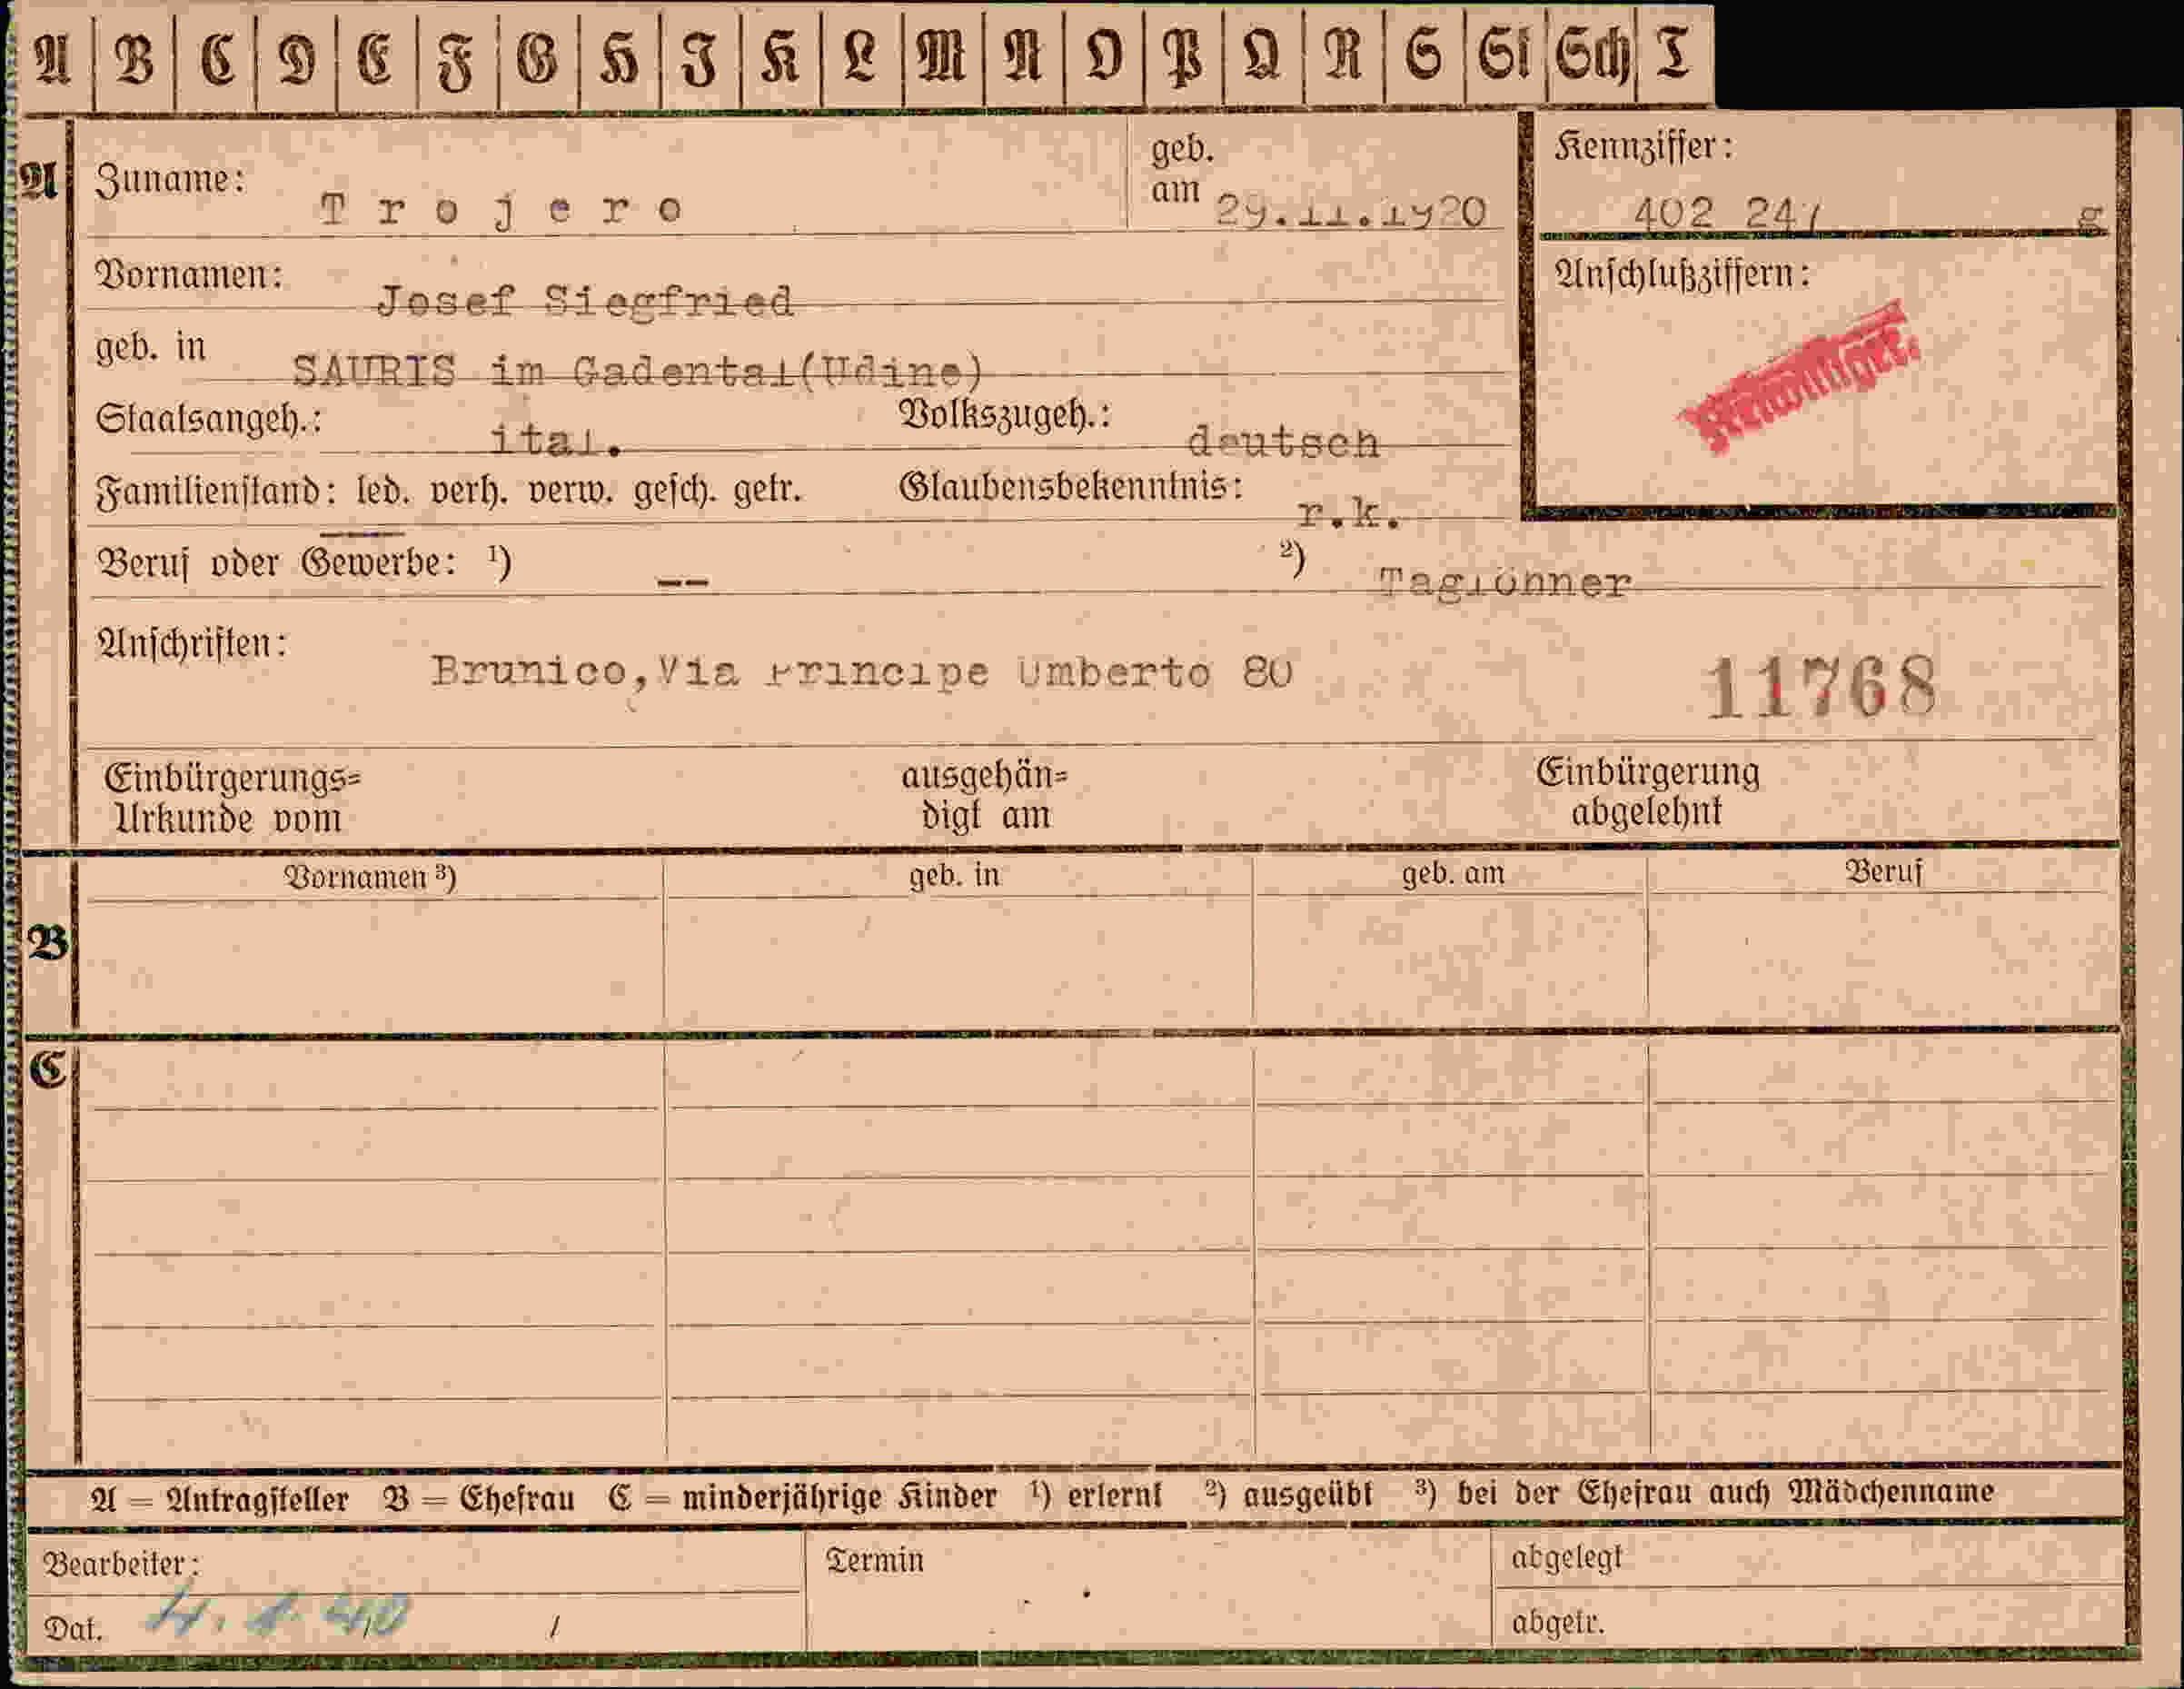 A B C D E F G H I K L M N O P Q R S St Sch T
A Zuname: Trojero geb. am 29.11.1920 Kennziffer: 402 247 g
Vornamen: Josef Siegfried Anschlußziffern:
geb. in SAURIS im Gadental(Udine)
Staatsangeh.: ital. Volkszugeh.: deutsch
Familienstand: led. verh. verw. gesch. getr. Glaubensbekenntnis: r.k.
Beruf oder Gewerbe: ¹) -- ²) Taglöhner
Anschriften: Brunico,Via Principe Umberto 80 11768
Einbürgerungs= ausgehän= Einbürgerung
Urkunde vom digt am abgelehnt
Vornamen ³) geb. in geb. am Beruf
B
C
A = Antragsteller B = Ehefrau C = minderjährige Kinder ¹) erlernt ²) ausgeübt ³) bei der Ehefrau auch Mädchenname
Bearbeiter: Termin abgelegt
Dat. abgetr.